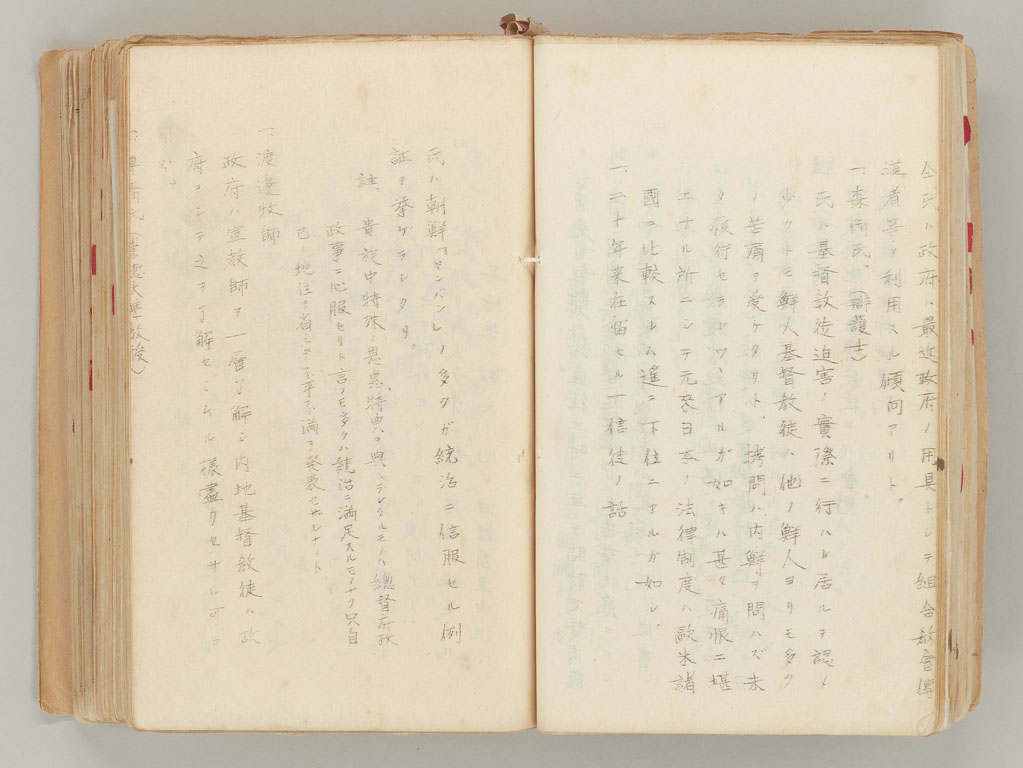 仝氏ハ政府ハ最近政府ノ用具トシテ組合教會傳
道者等ヲ利用スル傾向アリト。
一、李 氏、(辯護士)
氏ハ基督教徒迫害ノ實際ニ行ハレ居ルヲ認メ
少クトモ鮮人基督教徒ハ他ノ鮮人ヨリモ多ク
ノ苦痛ヲ受ケタリト、拷問ハ内鮮ヲ問ハズ未
タ履行セラレツヽアルガ如キハ甚タ痛恨ニ堪
エザル所ニシテ元來日本ノ法律制度ハ歐米諸
國ニ比較スルハ遙ニ下位ニオルガ如シ、
一、二十年來在留セル一信徒ノ話
氏ハ朝鮮 ノ多クガ統治ニ信服セル例
証ヲ挙ゲラレタリ。
註、貴族中特殊ノ恩惠特典ヲ與ヘラレタルモノハ總督府政
政事ニ心服セリト言フモ多クハ統治ニ満足スルモノナリ只自
己ノ地位 者 不平不満ヲ発表セサルナリト
一、渡邊牧師
政府ハ宣教師ヲ一層了解シ内地基督教徒ハ政
府ヲシテ之ヲ了解セシムル様盡力セサル可ラ
ズ。